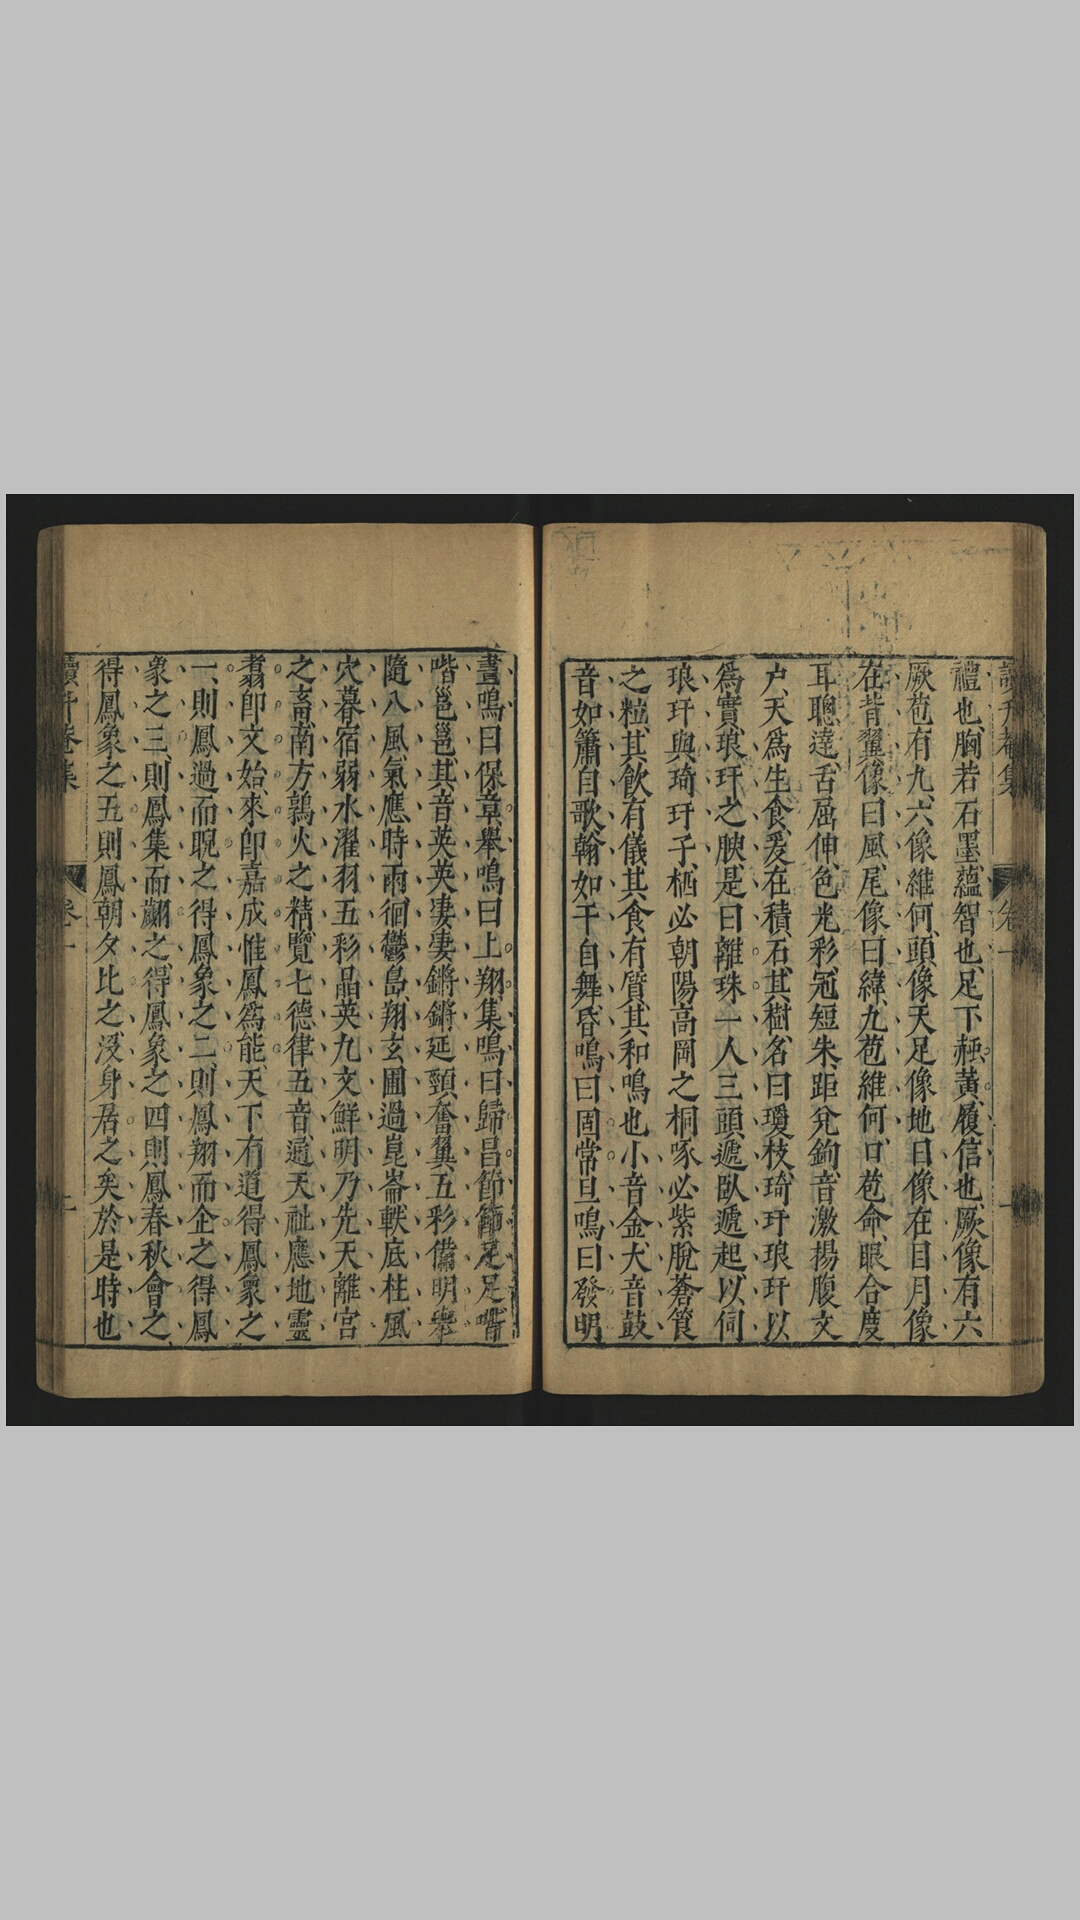 禮也胸若石墨蘊智也足下赩黃履信也厥像有六
厥苞有九六像維何頭像天足像地曰像在目月像
在背翼像曰風尾像曰緯九苞維何口苞命眼合度
耳聰達舌屈伸色光彩冠短朱距兌鉤音激揚腹文
户天爲生食爰在積石其樹名曰瓊枝琦玕琅玕以
爲實琅玕之腴是曰離珠一人三頭遞臥遞起以伺
琅玕與琦玕子栖必朝陽高岡之桐啄必紫脫蒼筤
之粒其飲有儀其食有質其和鳴也小音金大音鼓
音如簫自歌翰如干自舞昏鳴曰固常旦鳴曰發明
晝鳴曰保章舉鳴曰上翔集鳴曰歸昌節節足足喈
喈邕邕其音英英凄凄鏘鏘延頸奮翼五彩備明舉
隨八風氣應時雨徊鬱島翔玄圃過崑崙軼底柱風
穴暮宿弱水濯羽五彩晶英九文鮮明乃先天離宮
之畜南方鶉火之精覽七德律五音通天祉應地靈
翥卽文始來卽嘉成惟鳳爲能天下有道得鳳象之
一則鳳過而睨之得鳳象之二則鳳翔而企之得鳳
象之三則鳳集而翽之得鳳象之四則鳳春秋會之
得鳳象之五則鳳朝夕比之沒身居之矣於是時也
卷一